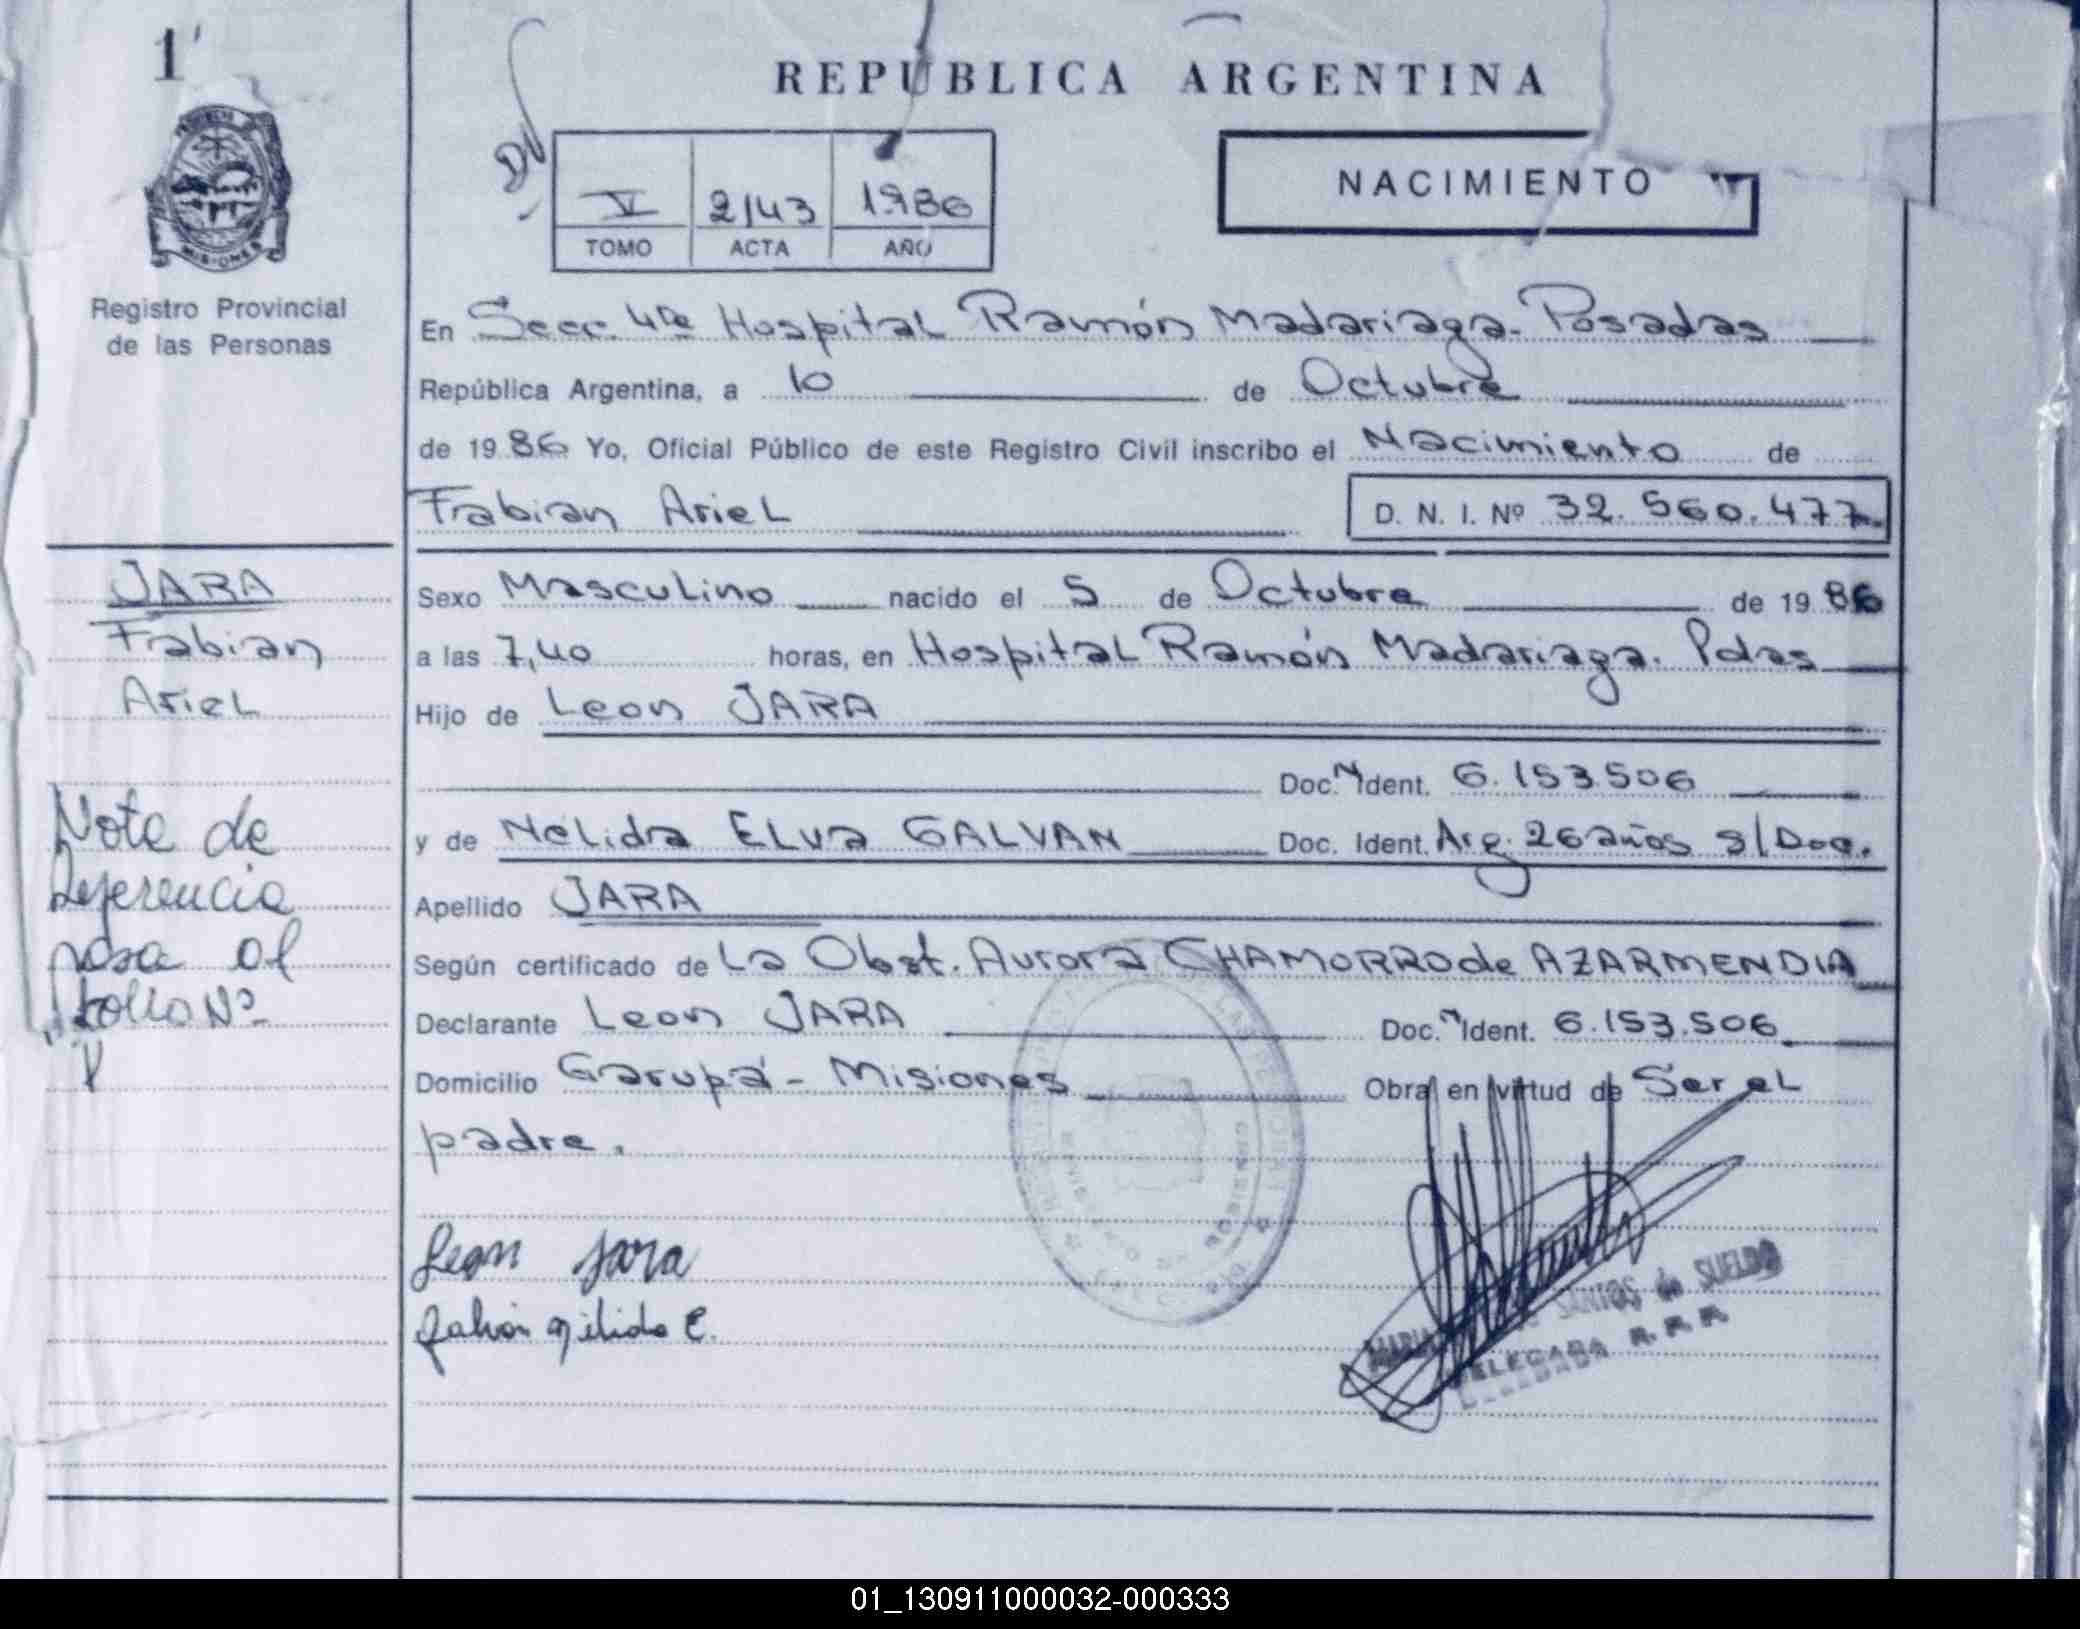 1
REPUBLICA ARGENTINA
V 2143 1986
TOMO ACTA AÑO
NACIMIENTO
MISIONES
Registro Provincial
de las Personas
En Secc. 4ta Hospital Ramón Madariaga. Posadas
República Argentina, a 10 de Octubre
de 1986 Yo, Oficial Público de este Registro Civil inscribo el Nacimiento de
Fabian Ariel D. N. I. Nº 32.560.477.
JARA
Fabian
Ariel
Nota de
Referencia
pasa al
folio Nº
V
Sexo Masculino nacido el 5 de Octubre de 1986
a las 7,40 horas, en Hospital Ramón Madariaga. Pdas
Hijo de Leon JARA
Doc. Ident. 6.153.506
y de Nélida Elva GALVAN Doc. Ident. Arg. 26 años s/Doc.
Apellido JARA
Según certificado de La Obst. Aurora CHAMORRO de AZARMENDIA
Declarante Leon JARA Doc. Ident. 6.153.506
Domicilio Garupá - Misiones Obra en virtud de Ser el
padre.
Leon Jara
Galvan Nelida E.
SANTOS de SUELDO
DELEGADA R. P. P.
01_130911000032-000333